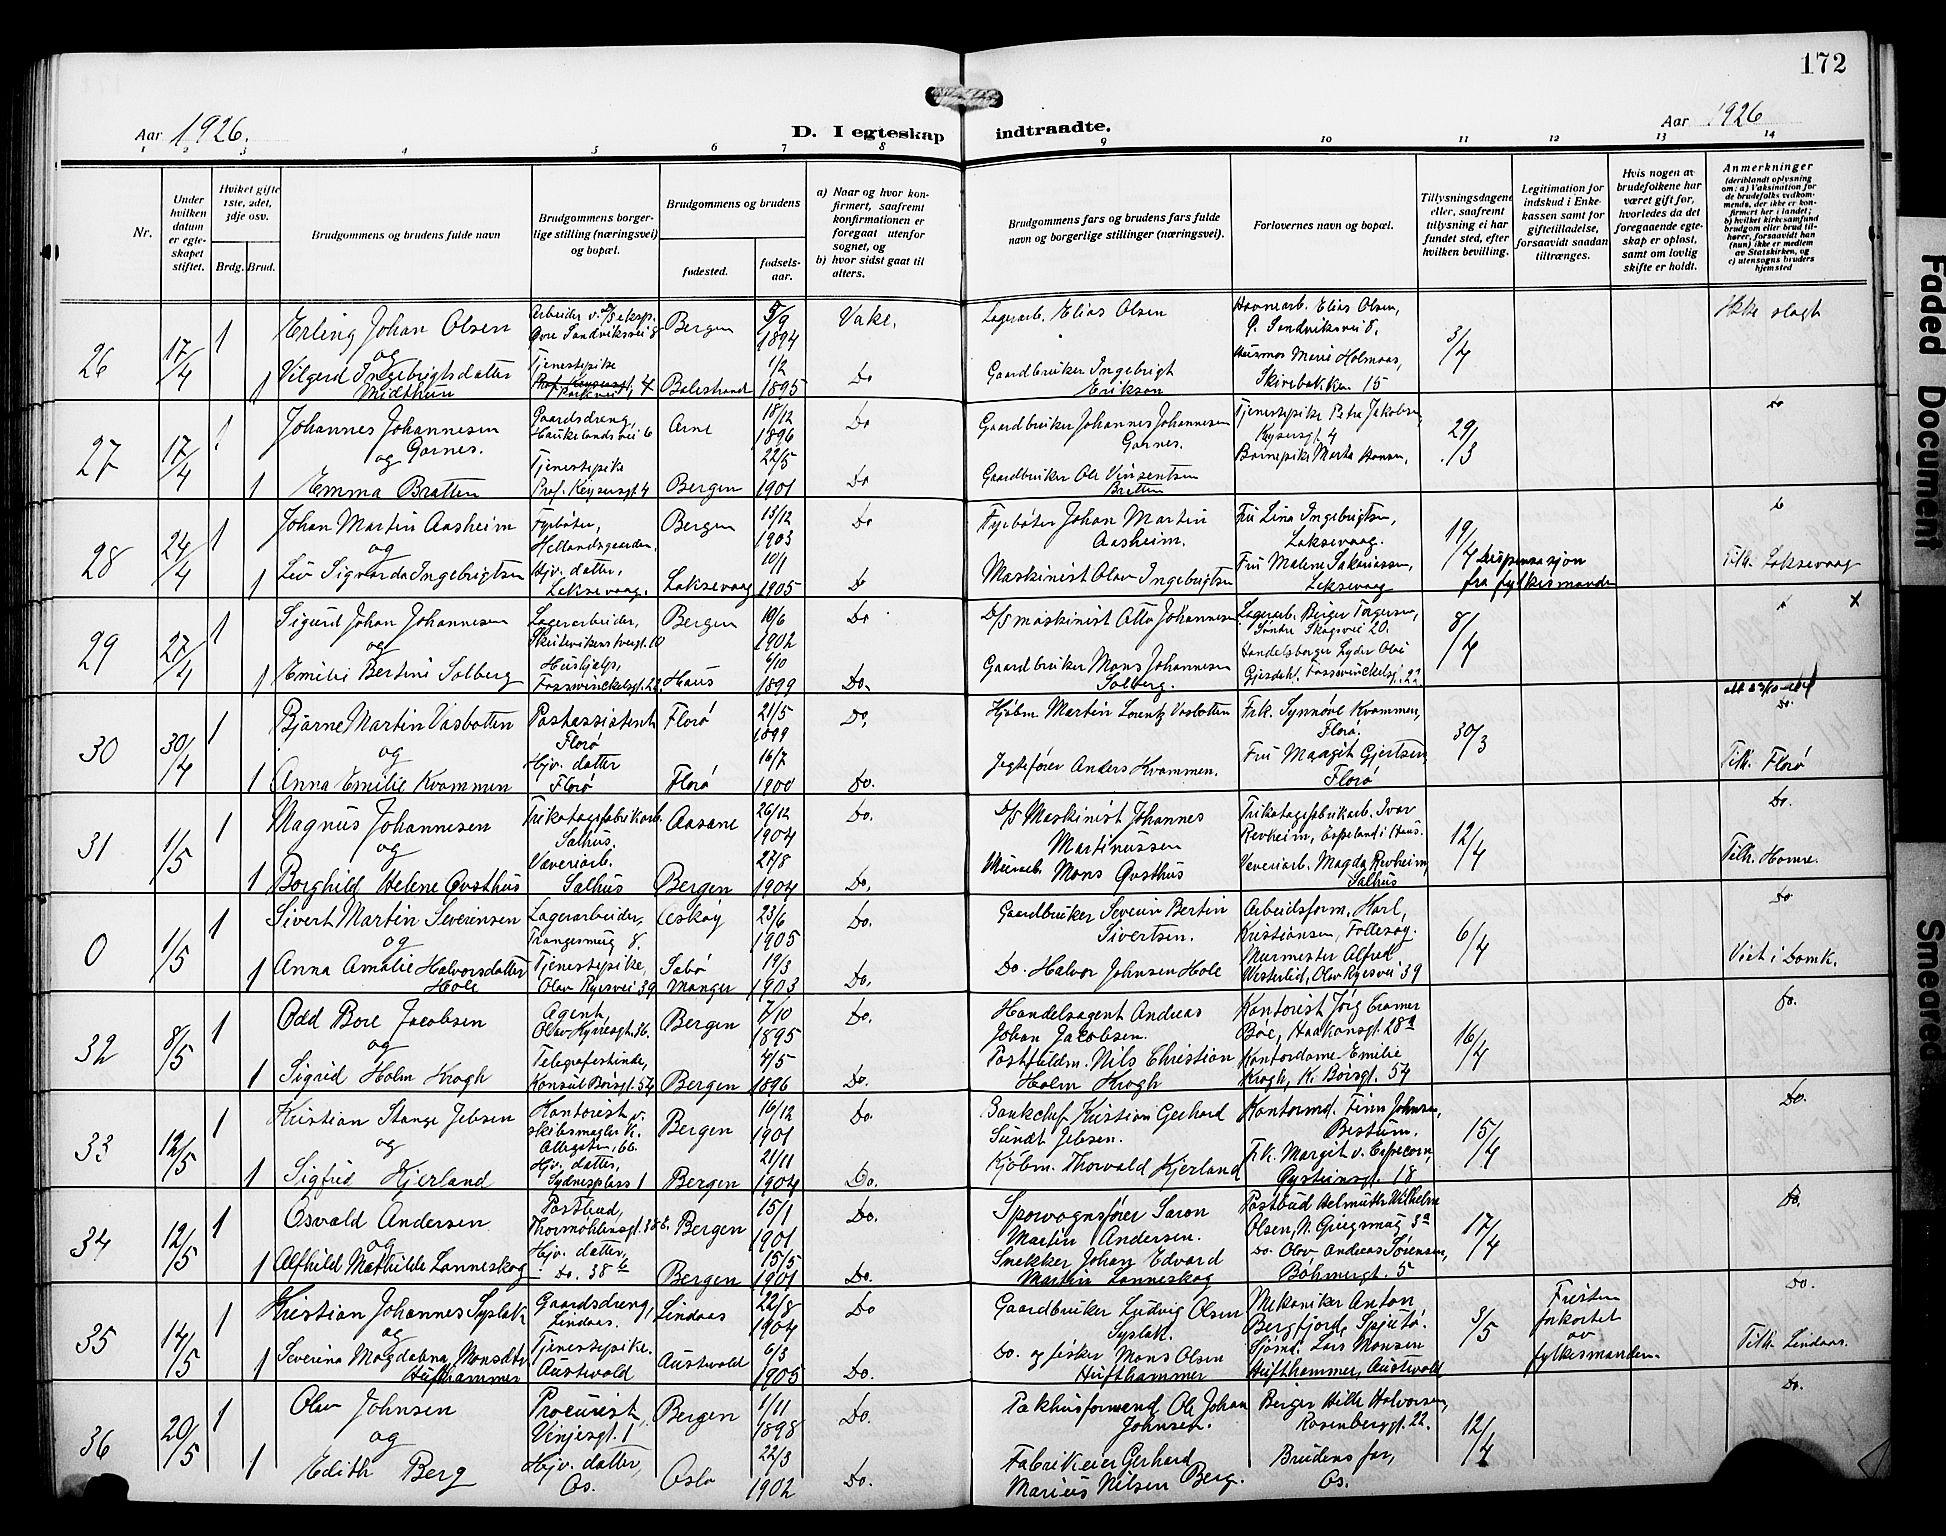 172
Aar 1926.
D. I egteskap indtraadte.
Aar 1926
1 2 3 4 5 6 7 8 9 10 11 12 13 14
Nr.
Under hvilken datum er egteskapet stiftet.
Hviket gifte 1ste, 2det, 3dje osv.
Brdg. Brud.
Brudgommens og brudens fulde navn
Brudgommens borgerlige stilling (næringsvei) og bopæl.
Brudgommens og brudens
fødested.
fødselsaar.
a) Naar og hvor konfirmert, saafremt konfirmationen er foregaat utenfor sognet, og
b) hvor sidst gaat til alters.
Brudgommens fars og brudens fars fulde navn og borgerlige stillinger (næringsvei).
Forlovernes navn og bopæl.
Tillysningsdagene eller, saafremt tillysning ei har fundet sted, efter hvilken bevilling.
Legitimation for indskud i Enkekassen samt for giftetilladelse, forsaavidt saadan tiltrænges.
Hvis nogen av brudefolkene har været gift før, hvorledes da det foregaaende egteskap er opløst, samt om lovlig skifte er holdt.
Anmerkninger
(deriblandt oplysning om: a) Vaksination for de brudefolks vedkommende, der ikke er konfirmert her i landet; b) hvilket kirkesamfund brudgom eller brud tilhører, forsaavidt han (hun) ikke er medlem av Statskirken, og c) utensogns bruders hjemsted
26 17/4 1 Erling Johan Olsen Arbeider v. D/S eksp. Øvre Sandviksvei 8 Bergen 5/9 1894 Vake. Lagerarb. Elias Olsen Havnearb. Elias Olsen, Ø. Sandviksvei 8. 3/4 Ikke slagt
og
1 Vilgerd Ingebrigtsdatter Midthun Tjenestepike Parkvei 4 Balestrand 1/2 1895 Do Gaardbruker Ingebrigt Erikson Husmor Marie Holmaas, Skivebakken 15
27 17/4 1 Johannes Johannesen Garnes. Gaardsdreng, Haukelandsvei 6 Arne 18/12 1896 Do Gaardbruker Johannes Johannesen Garnes. Tjenestepike Petra Jakobsen, Keysersgt. 4 29/3 Do
og
1 Emma Bratten Tjenestepike Prof. Keysersgt 4 Bergen 22/5 1901 Do Gaardbruker Ole Vinsentsen Bratten Barnepike Marta Hansen,
28 24/4 1 Johan Martin Aasheim Fyrbøter, Hellandsgaarden. Bergen 13/12 1903 Do Fyrbøter Johan Martin Aasheim. Fru Lina Ingebrigtsen, Laksevaag. 19/4 Dispensasjon fra fylkesmanden Do
og
1 Liv Sigvarda Ingebrigtsen Hjv. datter, Laksevaag. Laksevaag 10/1 1905 Do Maskinist Olav Ingebrigtsen Fru Malene Sakariassen, Laksevaag Tilh. Laksevaag
29 27/4 1 Sigurd Johan Johannesen Lagerarbeider, Skuteviksveigt. 10 Bergen 10/6 1902 Do D/S maskinist Otto Johannesen Lagerarb. Berger Torgersen, Søndre Skogvei 20. 8/4 x
og
1 Emilie Bertine Solberg Hushjelp, Fosswinckelsgt. 22. Haus 4/10 1899 Do. Gaardbruker Mons Johannesen Solberg. Handelsborger Lyder Olai Gjesdahl, Fosswinckelsgt. 22
30 30/4 1 Bjarne Martin Vasbotten Postassistent Florø Florø 21/5 1899 Do, Kjøbm. Martin Lorentz Vasbotten Frk. Synnøve Kvammen, Florø. 30/3 Do.
og
1 Anna Emilie Kvammen Hjv. datter Florø Florø 16/7 1900 Do. Jegtefører Anders Kvammen. Fru Maagit Gjertsen, Florø Tilh. Florø
31 1/5 1 Magnus Johannesen Trikotagefabrikarb. Salhus. Aasane 26/12 1904 Do. D/S Maskinist Johannes Martinussen Trikotagefabrikarb. Ivar Revheim, Espeland i Haus. 12/4 Do.
og
1 Borghild Helene Qvsthus Væveriarb. Salhus Bergen 27/8 1904 Do. Murarb. Mons Qvsthus Veveriarb. Magda Revheim, Salhus Tilh. Hamre.
0 1/5 1 Sivert Martin Severinsen Lagerarbeider, Trangesmug 8. Askøy 23/6 1905 Do. Gaardbruker Severin Bertin Sivertsen. Arbeidsform. Karl Kristiansen, Follesøy. 6/4 Do
og
1 Anna Amalie Halvorsdatter Hole Tjenestepike, Olav Ryesvei 39 Sabø Manger 19/3 1903 Do. Do. Halvor Johnsen Hole Murmester Alfred Westerlid, Olav Ryesvei 39 Viet i Domk.
32 8/5 1 Odd Bore Jacobsen Agent, Olav Kyrresgt. 36. Bergen 7/10 1895 Do. Handelsagent Andreas Johan Jacobsen. Kontorist Jørg Cramer Bøe, Haakonsgt. 28a 16/4 Do.
og
1 Sigrid Holm Krogh Telegrafistinde, Konsul Børsgt. 54 Bergen 4/5 1896 Do. Postfuldm. Nils Christian Holm Krogh Kontordame Emilie Krogh, K. Børsgt. 54
33 12/5 1 Kristian Stange Jebsen Kontorist v. skibsmægler k. Allegaten 66. Bergen 16/12 1901 Do. Bankchef Kristian Gerhard Sundt Jebsen. Kontormd. Finn Johnsen, Bestum. 15/4 Do.
og
1 Sigfrid Kjerland Hjv. datter, Sydnesplass 1 Bergen 21/11 1904 Do. Kjøbm. Thorvald Kjerland Frk. Margit v. Capecorn, Øysteinsgt. 18
34 12/5 1 Osvald Andersen Postbud, Thormøhlensgt. 38 b. Bergen 15/1 1901 Do. Sporvognsfører Saron Martin Andersen. Postbud Helmuth Wilhelm Olsen, N. Griegsmug 3a 17/4 Do.
og
1 Alfhild Mathilde Lanneskog Hjv. datter, — Do. 38 b Bergen 15/5 1901 Do. Snekker Johan Edvard Martin Lanneskog Do. Olav Andreas Sørensen, Bøhmergt. 5
35 14/5 1 Kristian Johannes Syslak Gaardsdreng, Lindaas. Lindaas 22/8 1904 Do Gaardbruker Ludvig Olsen Syslak. Mekaniker Anton Bergfjord, Spjutø. 3/5 Fristen forkortet av fylkesmanden. Do.
og
1 Severina Magdelina Monsdtr. Hufthammer Tjenestepike. Austevold Austevold 6/3 1905 Do. Do. og fisker Mons Olsen Hufthammer Sjømd. Lars Monsen Hufthammer, Austevold Tilh. Lindaas.
36 20/5 1 Olav Johnsen Procurist, Vinjesgt. 1 Bergen 1/11 1898 Do. Pakhusformand Ole Johan Johnsen. Berger Hille Halvorsen, Rosenberggt. 22. 12/4 Do.
og
1 Edith Berg Hjv. datter, Os. Oslo 22/3 1902 Do. Fabrikeier Gerhard Marius Nilsen Berg. Brudens far, Os.
Faded Document
Smeared